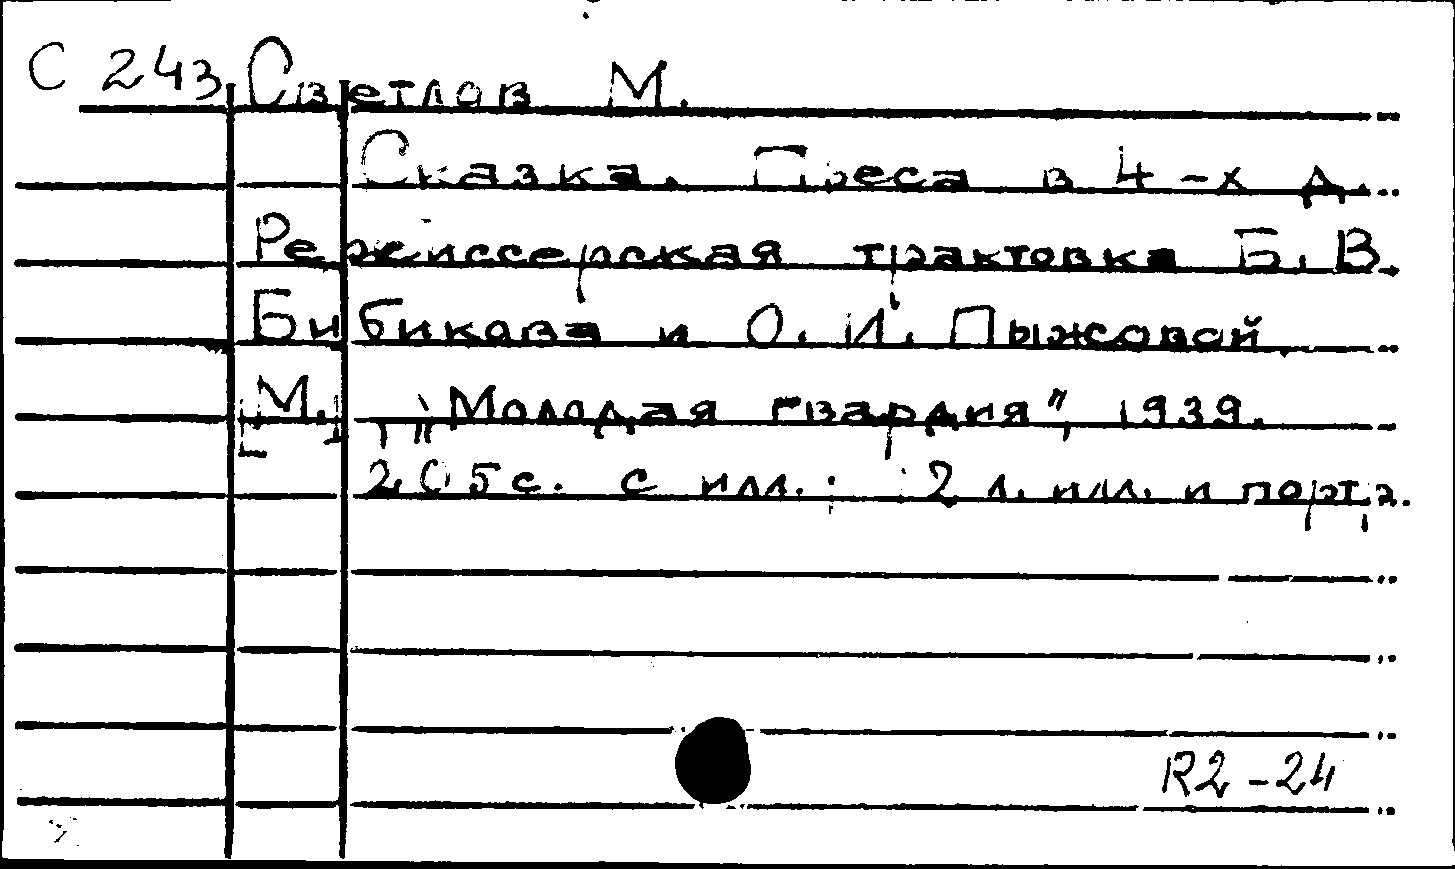 С 243 Светлов М.
Сказка. Пьеса в 4-х д.
Режиссерская трактовка Б. В.
Бибикова и О. И. Пыжовой.
[М.], „Молодая гвардия", 1939.
205с. с илл.; 2 л. илл. и портр.
R2-24